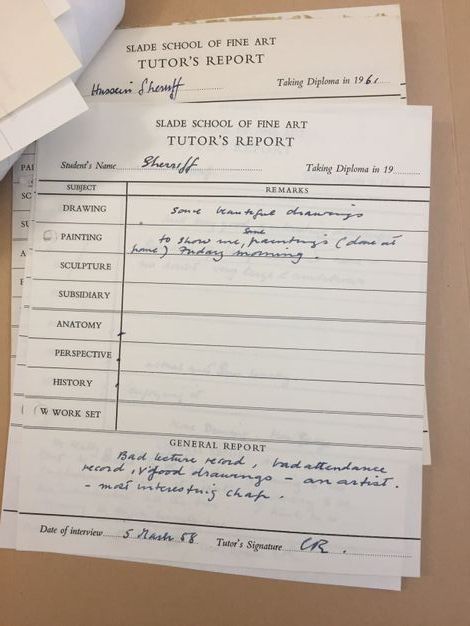 SLADE SCHOOL OF FINE ART
TUTOR'S REPORT
Hussein Sherriff Taking Diploma in 1961
SLADE SCHOOL OF FINE ART
TUTOR'S REPORT
Student's Name Sherriff Taking Diploma in 19
SUBJECT REMARKS
DRAWING Some beautiful drawings
PAINTING to show me, some paintings (done at
home) Friday morning.
SCULPTURE
SUBSIDIARY
ANATOMY
PERSPECTIVE
HISTORY
WORK SET
GENERAL REPORT
Bad lecture record, bad attendance
record, V good drawings – an artist.
– most interesting chap.
Date of interview 5 March 58 Tutor's Signature CR.